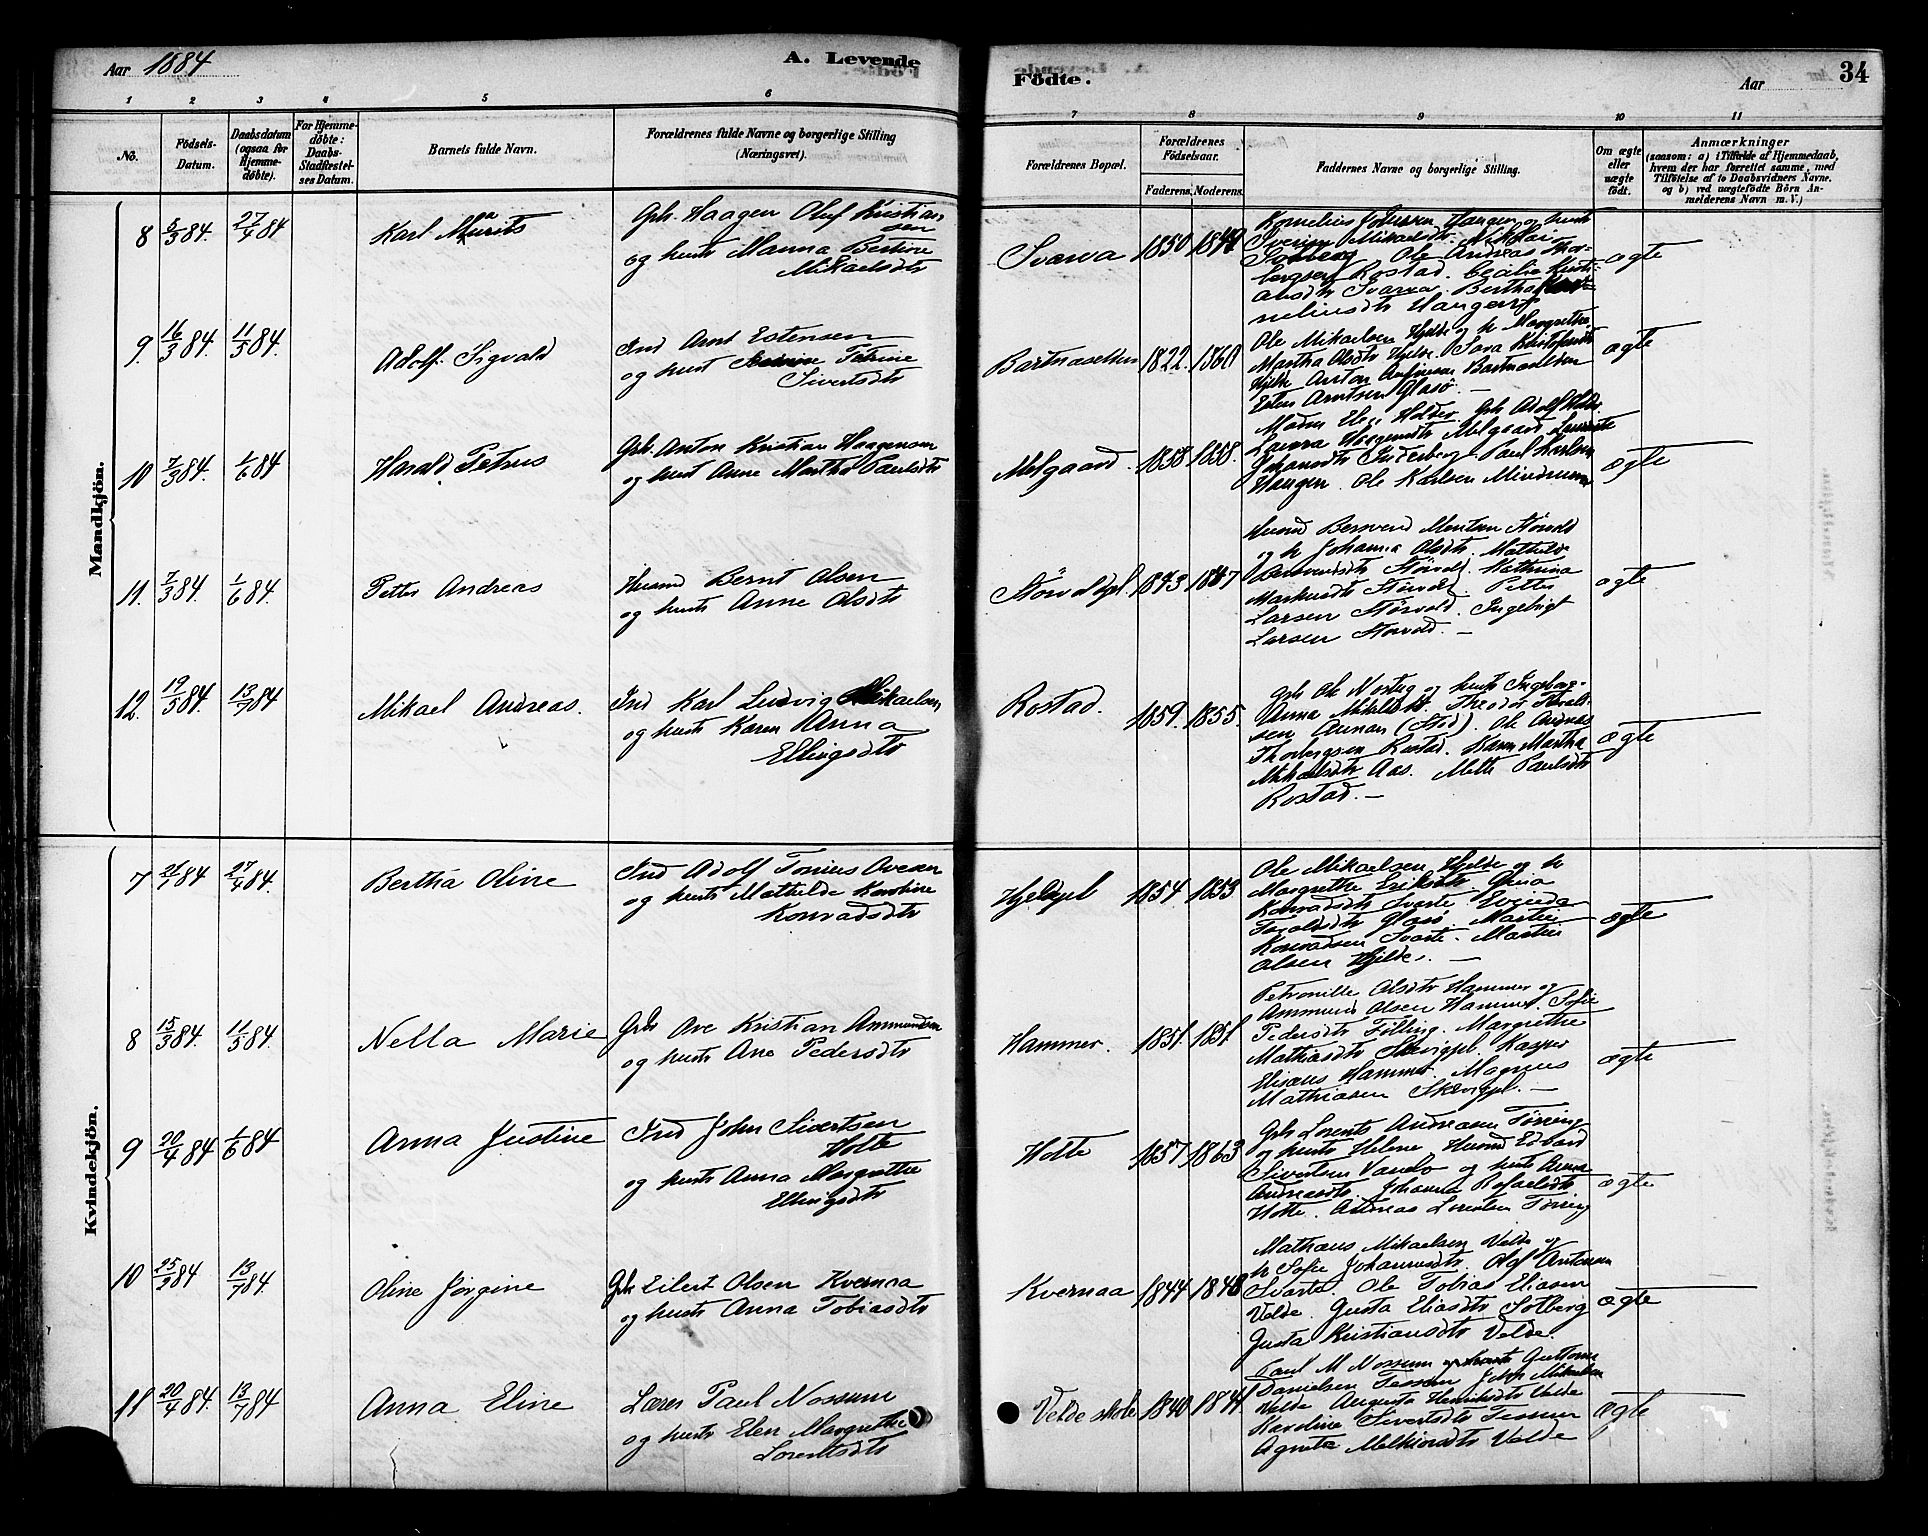 Aar 1884
A. Levende
Födte.
Aar
34
1 2 3 4 5 6 7 8 9 10 11
No.
Födsels-
Datum.
Daabsdatum
(ogsaa for
Hjemme-
døbte).
For Hjemme-
døbte:
Daabs-
Stadfæstel-
ses Datum.
Barnets fulde Navn.
Forældrenes fulde Navne og borgerlige Stilling
(Næringsvei).
Forældrenes Bopæl.
Forældrenes
Födselsaar.
Faderens. Moderens.
Faddernes Navne og borgerlige Stilling.
Om ægte
eller
uægte
født.
Anmærkninger
(saasom: a) i Tilfælde af Hjemmedaab,
hvem der har forrettet samme, med
Tilföielse af to Daabsvidners Navne.
og b) ved uægtefödte Börn An-
melderens Navn m. V.)
Mandkjön.
8 5/3 84. 27/4 84 Karl Murits
a
Gbr. Haagen Oluf Kristian
sen
og hust Manna Bertine
Mikaelsdtr
Svarva 1850 1849
Kornelius Johnsen Haugen og hust
Severine Mikaelsdtr. Nikolai
Solberg Ole Andreas Thor-
bergsen Rostad. Cecilie Kristi-
ansdtr Svarva. Bertha Kor-
neliusdtr Haugen
ægte
9. 16/3 84. 11/5 84. Adolf Sigvald
Ind Arnt Estensen
og hust Petrine
Sivertsdtr
Bartnaselven 1822. 1860
Ole Mikaelsen Hjelde og h Margrethe
Martha Olsdtr Hjelde. Sara Kristofersdtr
Hjelde Anton Andreasen Bartnaselven
Esten Arntsen Glasö. —
ægte
10 7/3 84. 1/6 84 Harald Petrus
Gbr. Anton Kristian Haagensen
og hust Anne Martha Paulsdtr
Melgaard. 1858 1858.
Madm Elen Holder. Gbr Adolf Holder
Laura Haagensdtr Melgaard Laurentse
Johansdtr Inderberg Paul Karlsen
Haugen. Ole Karlsen Mindrum
ægte
11. 7/3 84. 1/6 84. Petter Andreas
Husmd Bernt Olsen
og hustr Anne Olsdtr
Størvoldpl. 1843 1847
Husmd Bernvend Mentsen Størvold
og h Johanna Olsdtr. Mathilde
Bernvendsdtr Størvold. Kathrina
Markusdtr Størvold Petter
Larsen Størvold. Ingebrigt
Larsen Størvold. —
ægte
12. 19/5 84. 13/7 84 Mikael Andreas.
Ind Karl Ludvig Mikaelsen
og hustr Karen Anna
Ellingsdtr
Rostad. 1859. 1855.
Gbr Ole Nosteg og hustr Ingeborg-
Anna Mikalsdtr. Theodor Torvald-
sen Aunan (Stod). Ole Andreas
Thorbergsen Rostad. Karen Martha
Mikaelsdtr Aas. Mette Paulsdtr
Rostad. —
ægte
Kvindekjön.
7 21/1 84 27/4 84. Bertha Oline
Ind Adolf Tonius Avesen
og hustr Mathilde Karoline
Konradsdtr
Hjeldepl 1854. 1853.
Ole Mikaelsen Hjelde og h
Margrethe Eriksdtr.
Konradsdtr Svarte. Evenda
Toraldsdtr Glasö. Martin
Konradsen Svarte. Martin
Olsen Hjelde. —
ægte
8 15/3 84. 11/5 84. Nella Marie
Gbr Ave Kristian Ammundsen
og hustr Ane Pedersdtr
Hammer. 1851. 1851
Petronille Olsdtr Hammer og
Ammund Olsen Hammer. Sofie
Pedersdtr Følling. Margrethe
Mathiasdtr Skevigpl. Kasper
Elisæus Hammer. Magnus
Mathiasen Skevigpl. —
ægte
9 20/4 84 1/6 84 Anna Justine
Ind John Sivertsen
Holte
og hustr Anna Margrethe
Ellingsdtr
Holte 1857 1863
Gbr Lorents Andreasen Tørring
og hustr Helene Husmd Edvard
Sivertsen Vandø og hustr Anna
Andreasdtr. Johanna Rafaelsdtr
Holte. Andreas Lorentsen Tørring
ægte
10 25/2 84 13/7 84. Oline Jørgine
Gbr Eilert Olsen Kvernaa
og hustr Anna Tobiasdtr
Kvernaa 1844 1848
Mathæus Mikaelsen Velde og
h Sofie Johannesdtr. Olaf Antonsen
Svarte. Ole Tobias Eliasen
Velde. Gusta Eliasdtr Solberg
Gusta Kristiansdtr Velde.
ægte
11 20/4 84. 13/7 84 Anna Eline
Lærer Paul Nossum
og hustr Elen Margrethe
Lorentsdtr
Velde skole 1840 1844.
Paul M Nossum og hustr Guttorm
Danielsen Tessem John Mikaelsen
Velde Augusta Henriksdtr Velde
Karoline Sivertsdtr Tessem
Agneta Melkiorsdtr Velde
ægte